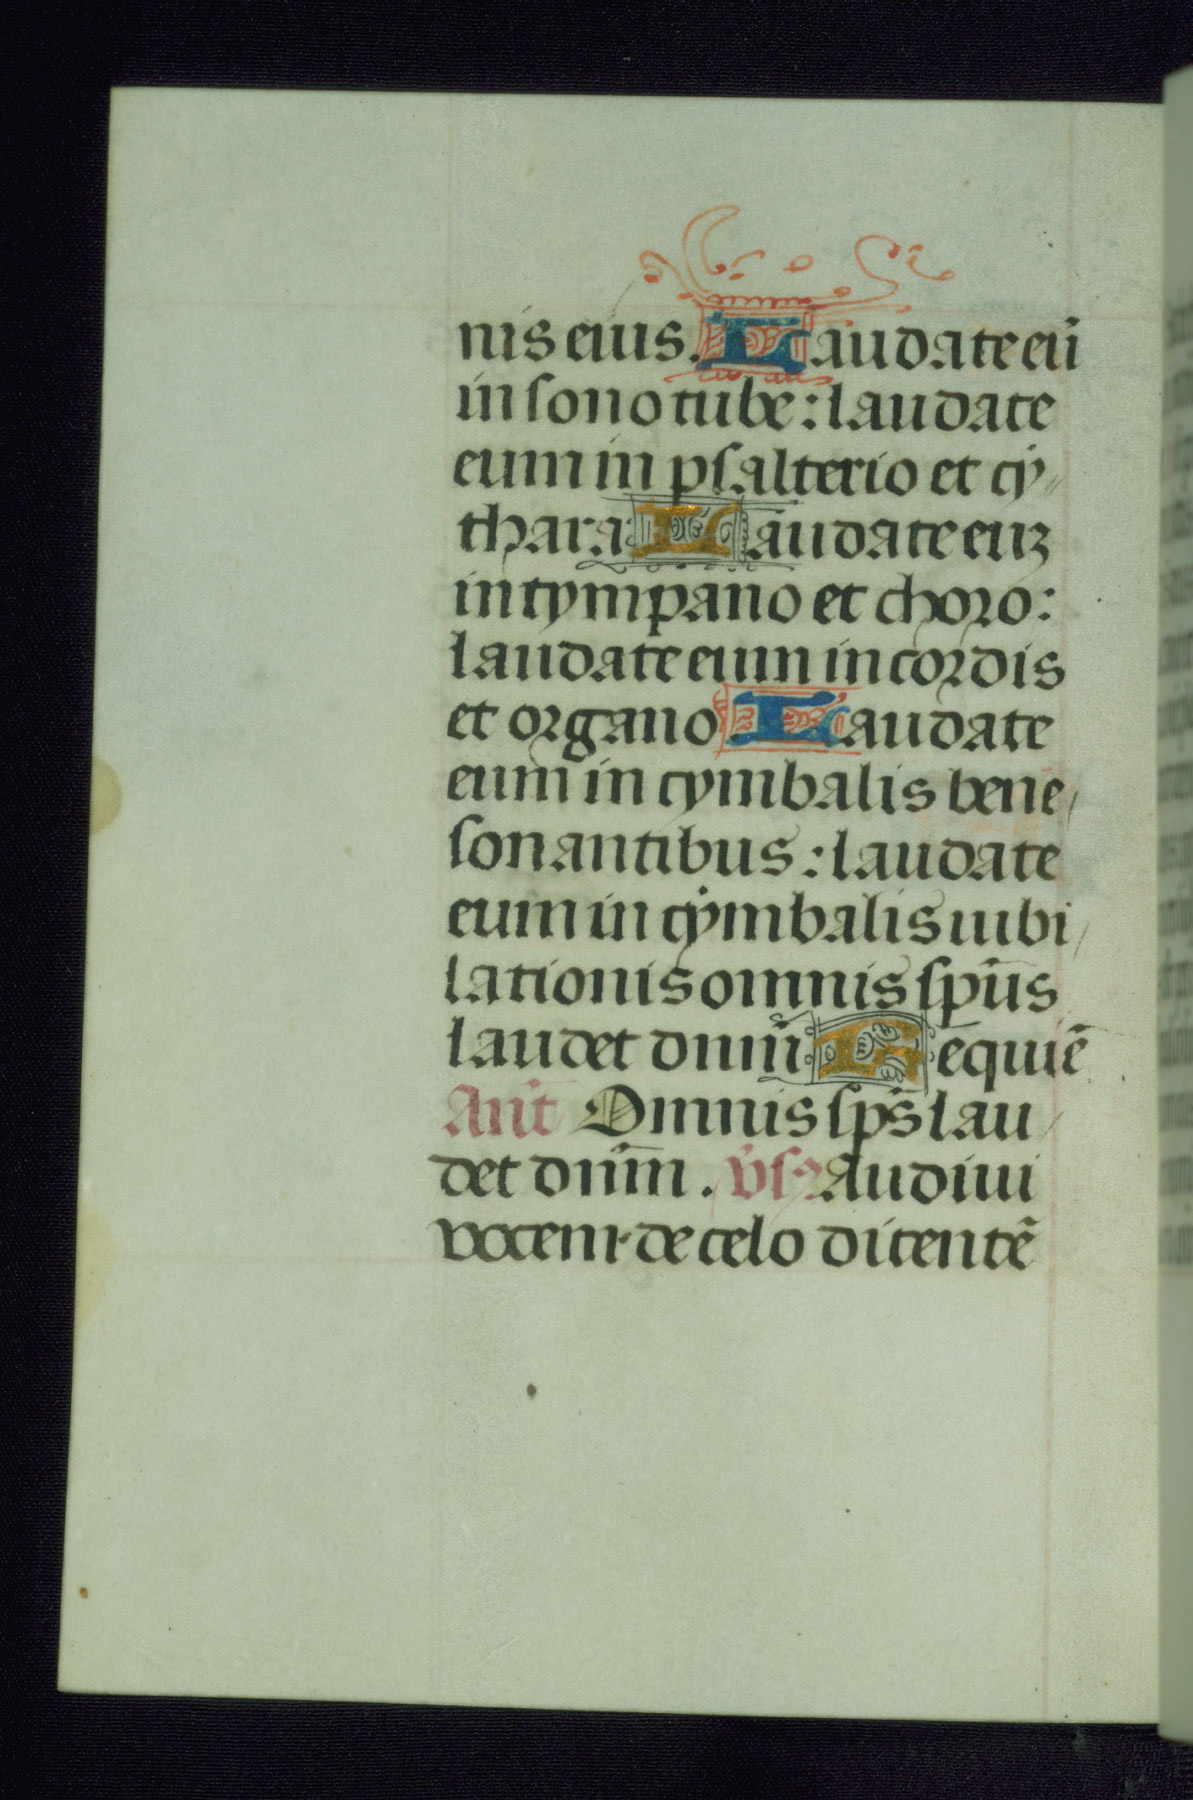 nis eius. Laudate eū
in sono tube: laudate
eum in psalterio et cẏ
thara: Laudate euꝫ
in tympano et choro:
laudate eum in cordis
et organo Laudate
eum in cymbalis bene
sonantibus: laudate
eum in cẏmbalis iubi
lationis omnis sp̄us
laudet dnm̄ Requiē
An̄t Omnis sp̄s lau
det dnm̄. vs̄ Audiui
vocem de celo dicentē